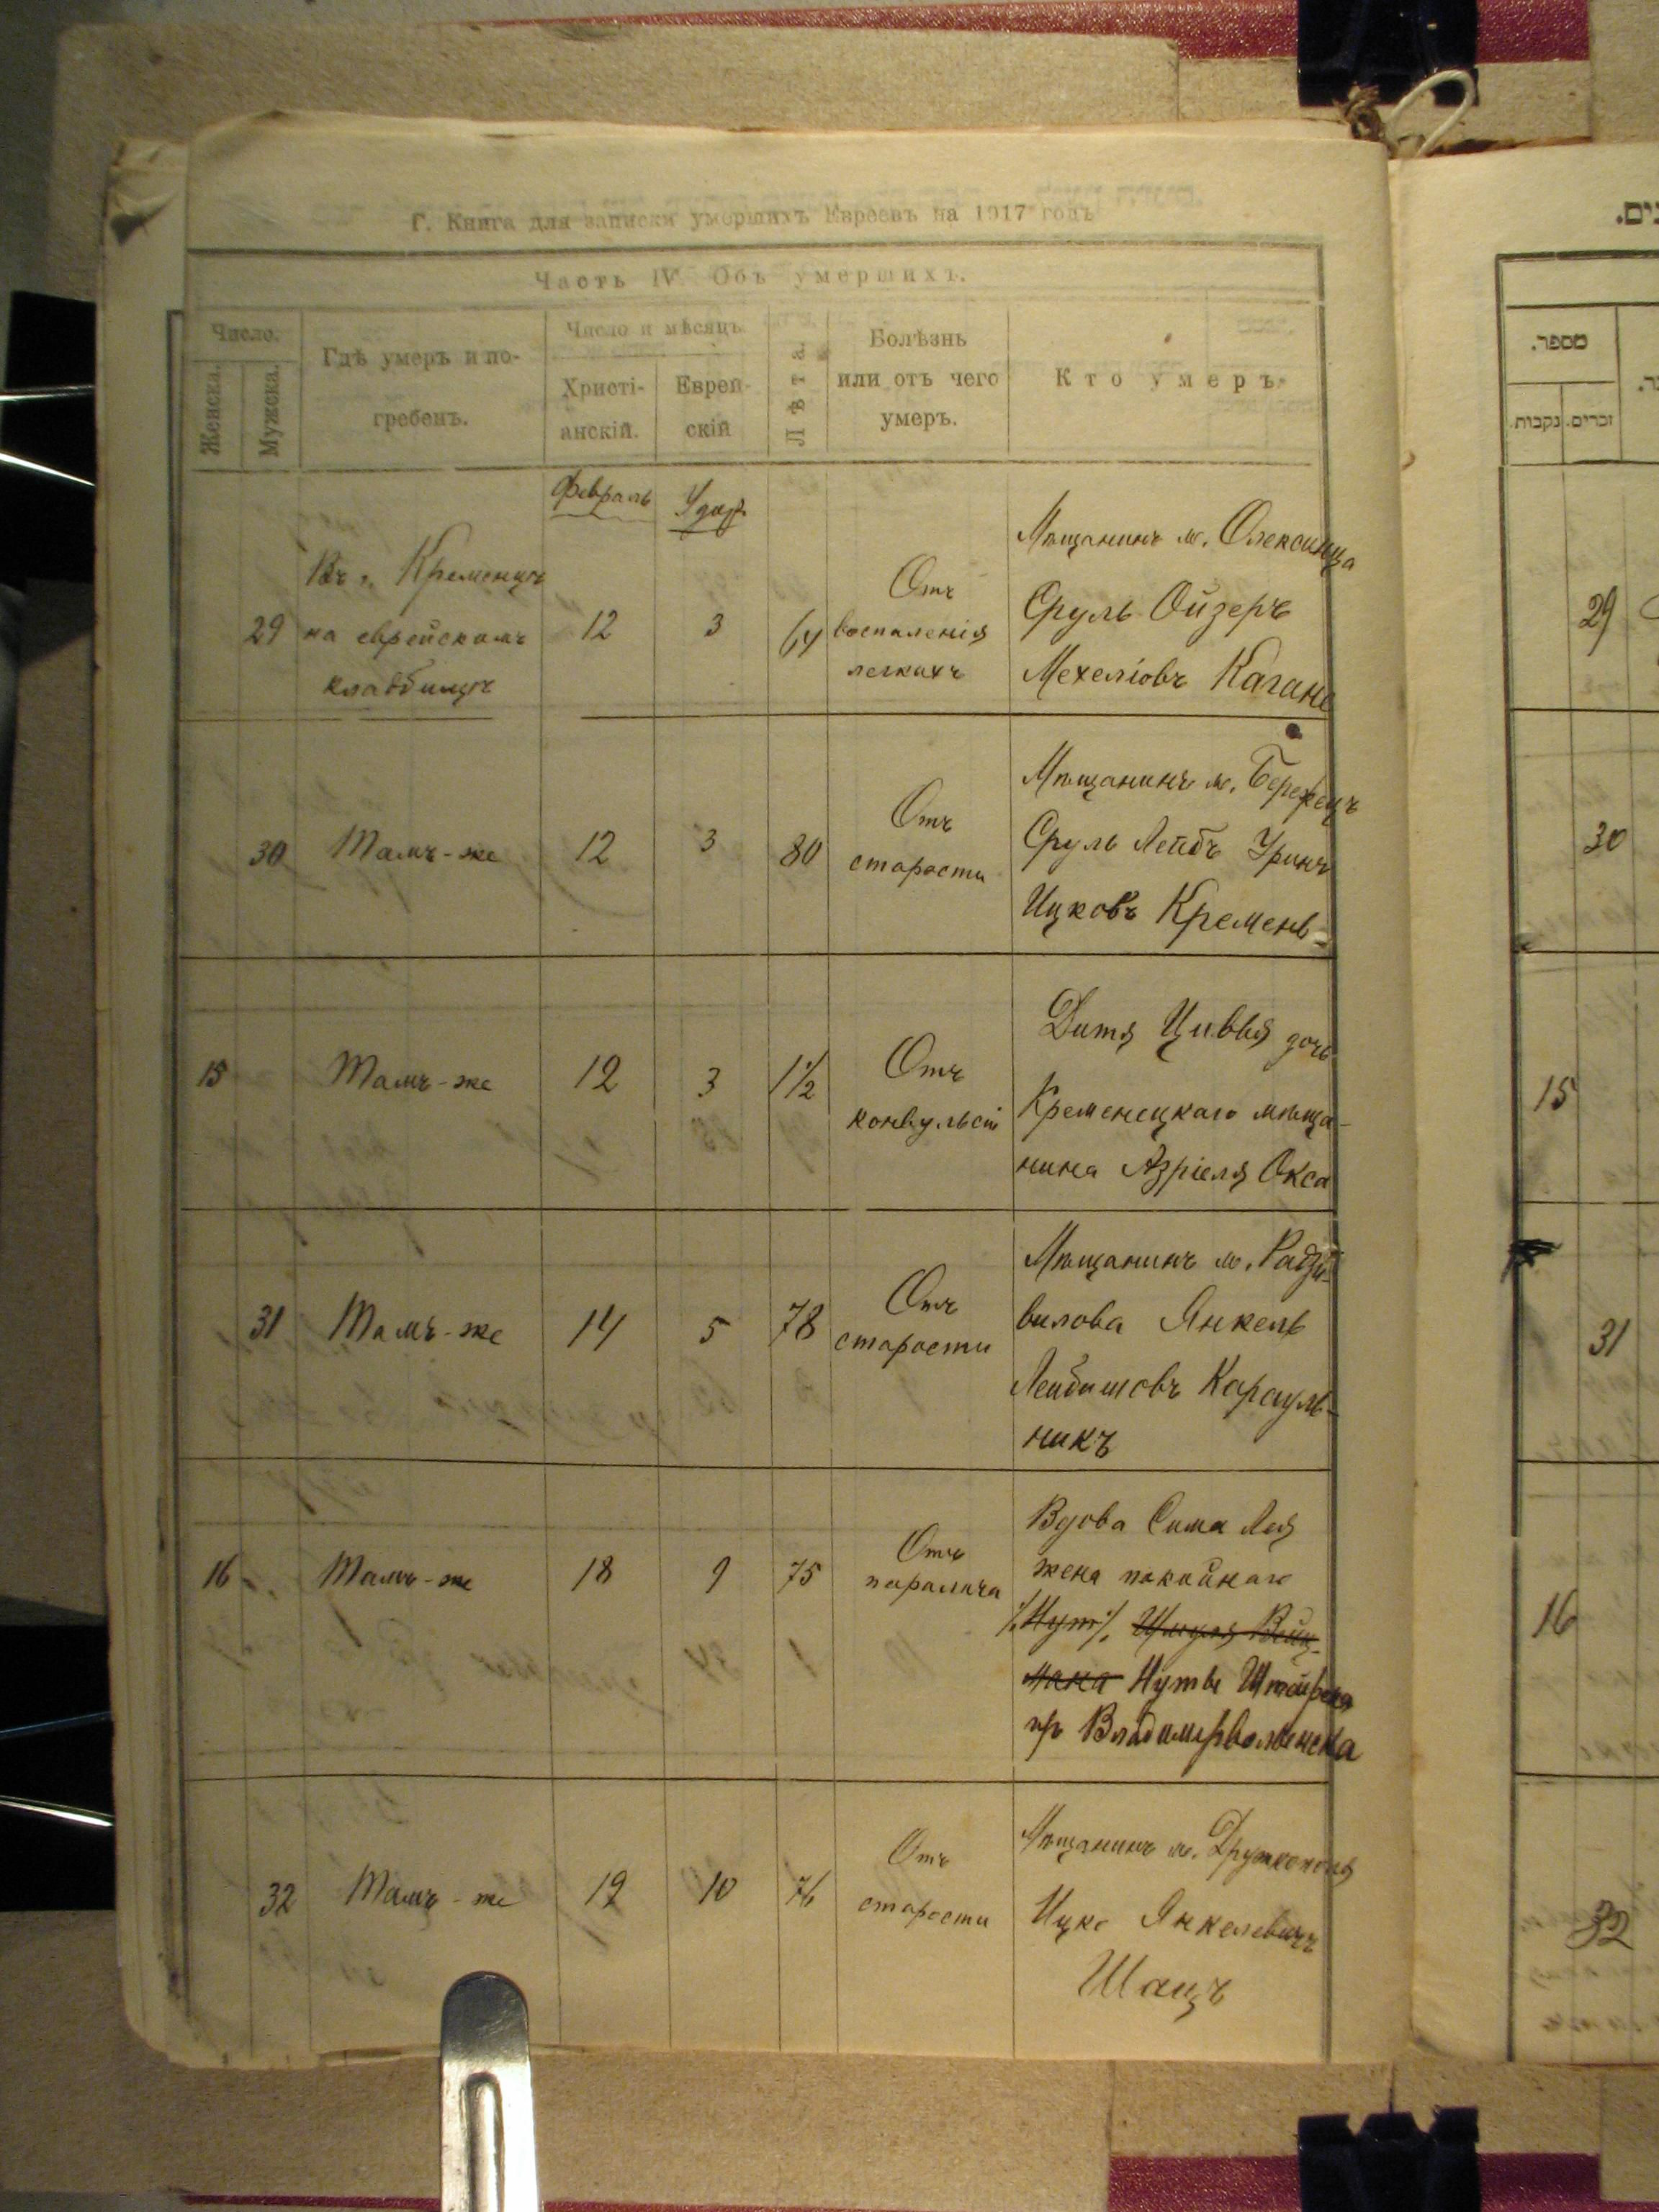 Г. Книга для записки умершихъ Евреевъ на 1917 годъ
Часть IV. Объ умершихъ.
Число.
Женска.
Мужска.
Гдѣ умеръ и по-
гребенъ.
Число и мѣсяцъ
Христі-
анскій.
Еврей-
скій
Лѣта.
Болѣзнь
или отъ чего
умеръ.
Кто умеръ.
Февраль
29
Въ г. Кременцѣ
на еврейскомъ
кладбищѣ
12
3
64
Отъ
воспаленія
легкихъ
Мѣщанинъ м. Олексинца
Сруль Ойзеръ
Мехеліовъ Кагане
30
Тамъ-же
12
3
80
Отъ
старости
Мѣщанинъ м. Бережецъ
Сруль Лейбъ Уринъ
Ицковъ Кремень
15
Тамъ-же
12
3
1 1/2
Отъ
конвульсій
Дитя Цивья дочь
Кременецкаго мѣща-
нина Азріеля Окса
31
Тамъ-же
14
5
78
Отъ
старости
Мѣщанинъ м. Радзи-
вилова Янкель
Лейбишовъ Карауль-
никъ
16
Тамъ-же
18
9
75
Отъ
паралича
Вдова Сима Лея
жена покойнаго
Шмуля
Нуты
Владимирволынска
32
Тамъ-же
19
10
76
Отъ
старости
Мѣщанинъ м. Дружкополя
Ицко Янкелевичъ
Шацъ
מספר.
נקבות.
זכרים.
29
30
15
31
16
32